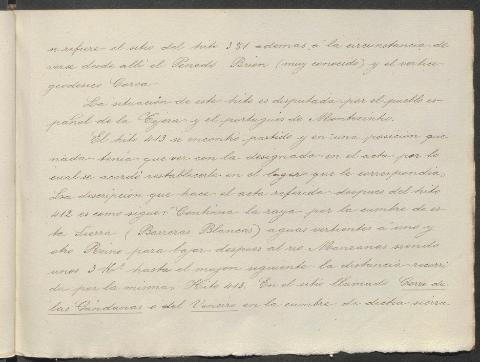 n refiere el sitio del hito 381 además á la circunstancia de
verse desde allí el Penedo Brion (muy conocido) y el vertice
geodesico Coroa.
La situación de este hito es disputada por el pueblo es-
pañol de la Tejera y el portugués de Montesinho.
El hito 413 se encontró partido y en una posición que
nada tenia que ver con la designada en el acta por lo
cual se acordó restablecerle en el lugar que le correspondia.
La descripción que hace el acta referida despues del hito
412 es como sigue: "Continua la raya por la cumbre de es-
ta Sierra (Barreras Blancas) aguas vertientes á uno y
otro Reino para bajar despues al rio Manzanas siendo
unos 3 Kos hasta el mojon siguiente la distancia recorri-
da por la misma. Hito 413. En el sitio llamado Cerro de
las Gándaras o del Venero en la cumbre de dicha sierra